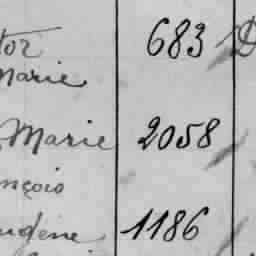 tor 683 D
Marie
Marie 2058
nçois
udène 1186